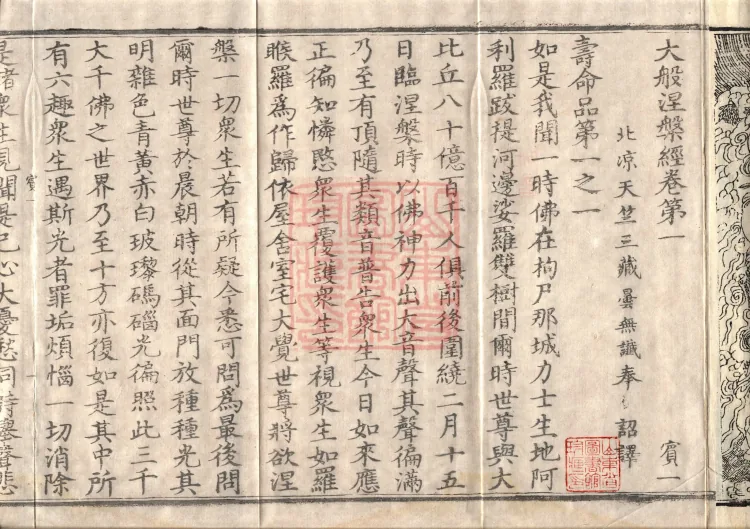 大般涅槃經卷第一 賓一
北凉天竺三藏曇無讖奉 詔譯
壽命品第一之一
如是我聞一時佛在拘尸那城力士生地阿
利羅跋提河邊娑羅雙樹間爾時世尊與大
比丘八十億百千人俱前後圍繞二月十五
日臨涅槃時以佛神力出大音聲其聲徧滿
乃至有頂隨其類音普告衆生今日如來應
正徧知憐愍衆生覆護衆生等視衆生如羅
睺羅爲作歸依屋舍室宅大覺世尊將欲涅
槃一切衆生若有所疑今悉可問爲最後問
爾時世尊於晨朝時從其面門放種種光其
明雜色青黃赤白玻瓈碼碯光徧照此三千
大千佛之世界乃至十方亦復如是其中所
有六趣衆生遇斯光者罪垢煩惱一切消除
賓一 一
是諸衆生見聞是已心大憂愁同時舉聲悲